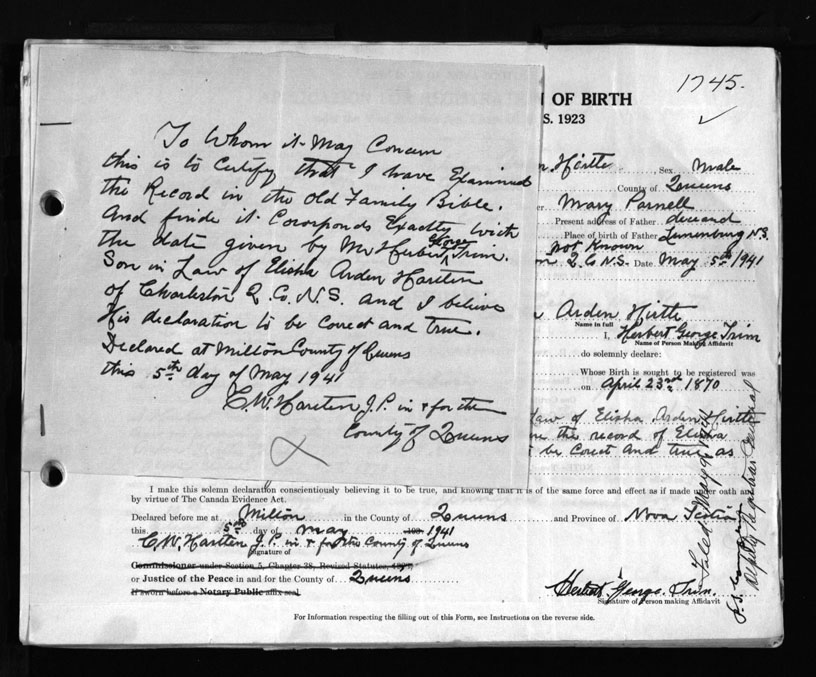 1745.
To Whom it May Concern
this is to Certify that I have Examined
the Record in the Old Family Bible.
And finde it Corosponds Exactly with
the date given by Mr Hubert George Trim.
Son in Law of Elisha Arden Hartten
of Charleston Q. Co. N.S. and I believe
His declaration to be Corect and true.
Declared at Milton County of Queens
this 5th day of May 1941
C. W. Hartten J.P. in & for the
County of Queens
OF BIRTH
S. 1923
Hirtle, Sex Male
County of Queens
Mary Parnell
Present address of Father deceased
Place of birth of Father Lunenburg N.S.
Not Known
Q. Co N.S. Date May 5th 1941
Arden Hirtle
Name in full
I, Herbert George Trim
Name of Person Making Affidavit
do solemnly declare:
Whose Birth is sought to be registered was
on April 23rd 1870
law of Elisha Arden Hirtle
the record of Elisha
be Corect and true as
I make this solemn declaration conscientiously believing it to be true, and knowing that it is of the same force and effect as if made under oath and
by virtue of The Canada Evidence Act.
Declared before me at Milton in the County of Queens and Province of Nova Scotia
this 5th day of May 193 1941
C. W. Hartten J.P. in & for the County of Queens
Signature of
Commissioner under Section 5, Chapter 38, Revised Statutes, 1923
or Justice of the Peace in and for the County of Queens
If sworn before a Notary Public affix seal
Herbert George Trim.
Signature of Person making Affidavit
Filed May
Deputy Registrar General
For Information respecting the filling out of this Form, see Instructions on the reverse side.